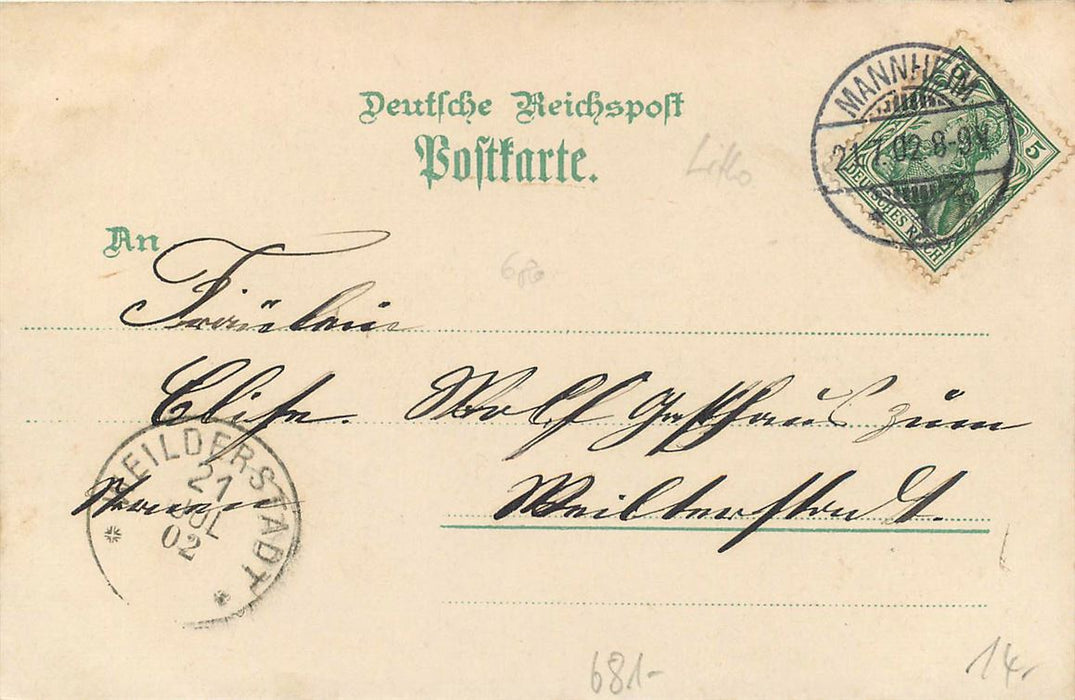 Deutsche Reichspost
Postkarte.
MANNHEIM
21.7.02.8-9V.
1
5
DEUTSCHES REICH
Litho
An
680
Fräulein
Elise. Wolf Gasthaus zum
Weilderstadt.
WEILDERSTADT
21
JUL
02
681-
14.